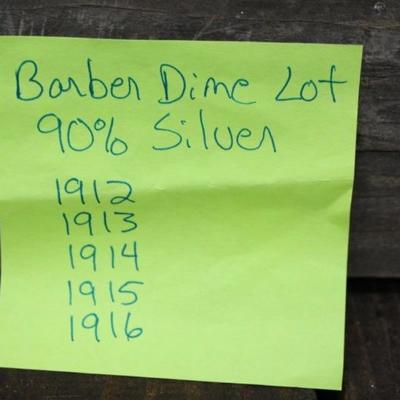 Barber Dime Lot
90% Silver
1912
1913
1914
1915
1916